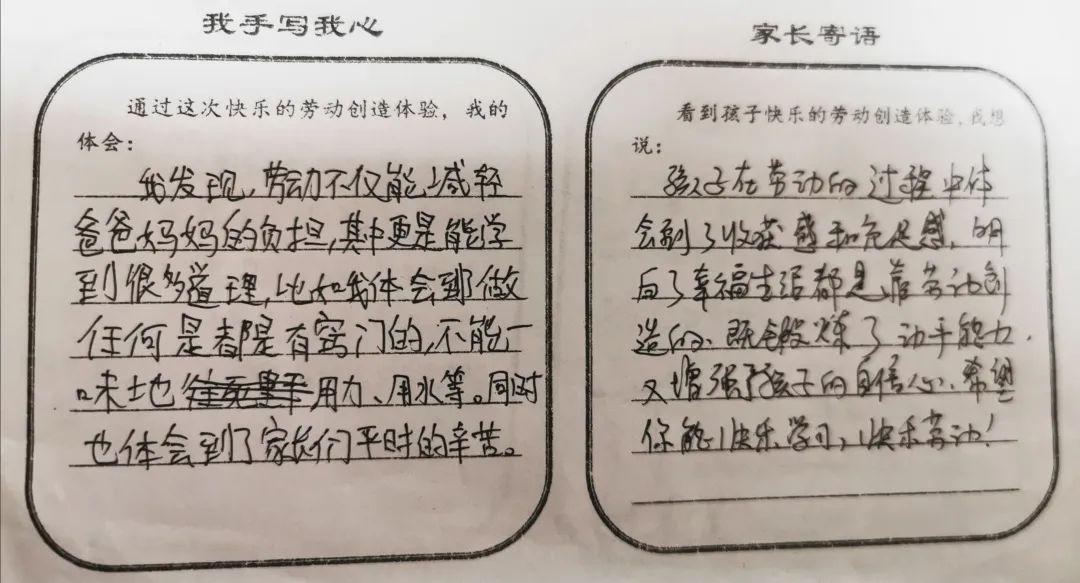 我手写我心
通过这次快乐的劳动创造体验，我的
体会：
我发现，劳动不仅能减轻
爸爸妈妈的负担，其中更是能学
到很多道理，比如我体会到做
任何是都是有窍门的，不能一
味地用力、用水等。同时
也体会到了家长们平时的辛苦。
家长寄语
看到孩子快乐的劳动创造体验，我想
说：
孩子在劳动的过程中体
会到了收获感和充足感，明
白了幸福生活都是靠劳动创
造的，既锻炼了动手能力，
又增强了孩子的自信心，希望
你能快乐学习，快乐劳动！